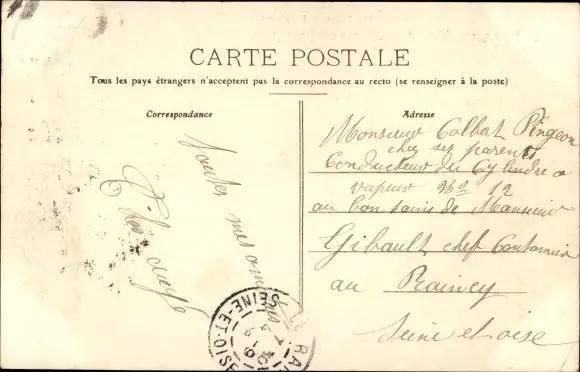 CARTE POSTALE
Tous les pays étrangers n'acceptent pas la correspondance au recto (se renseigner à la poste)
Correspondance
toutes mes
Adresse
Monsieur Colbat Pingeon
chez ses parents
Conducteur du Cylindre a
vapeur No 12
au bon soins de Monsieur
Gibault chef Cantonnier
au Raincy
Seine et oise
SEINE-ET-OISE